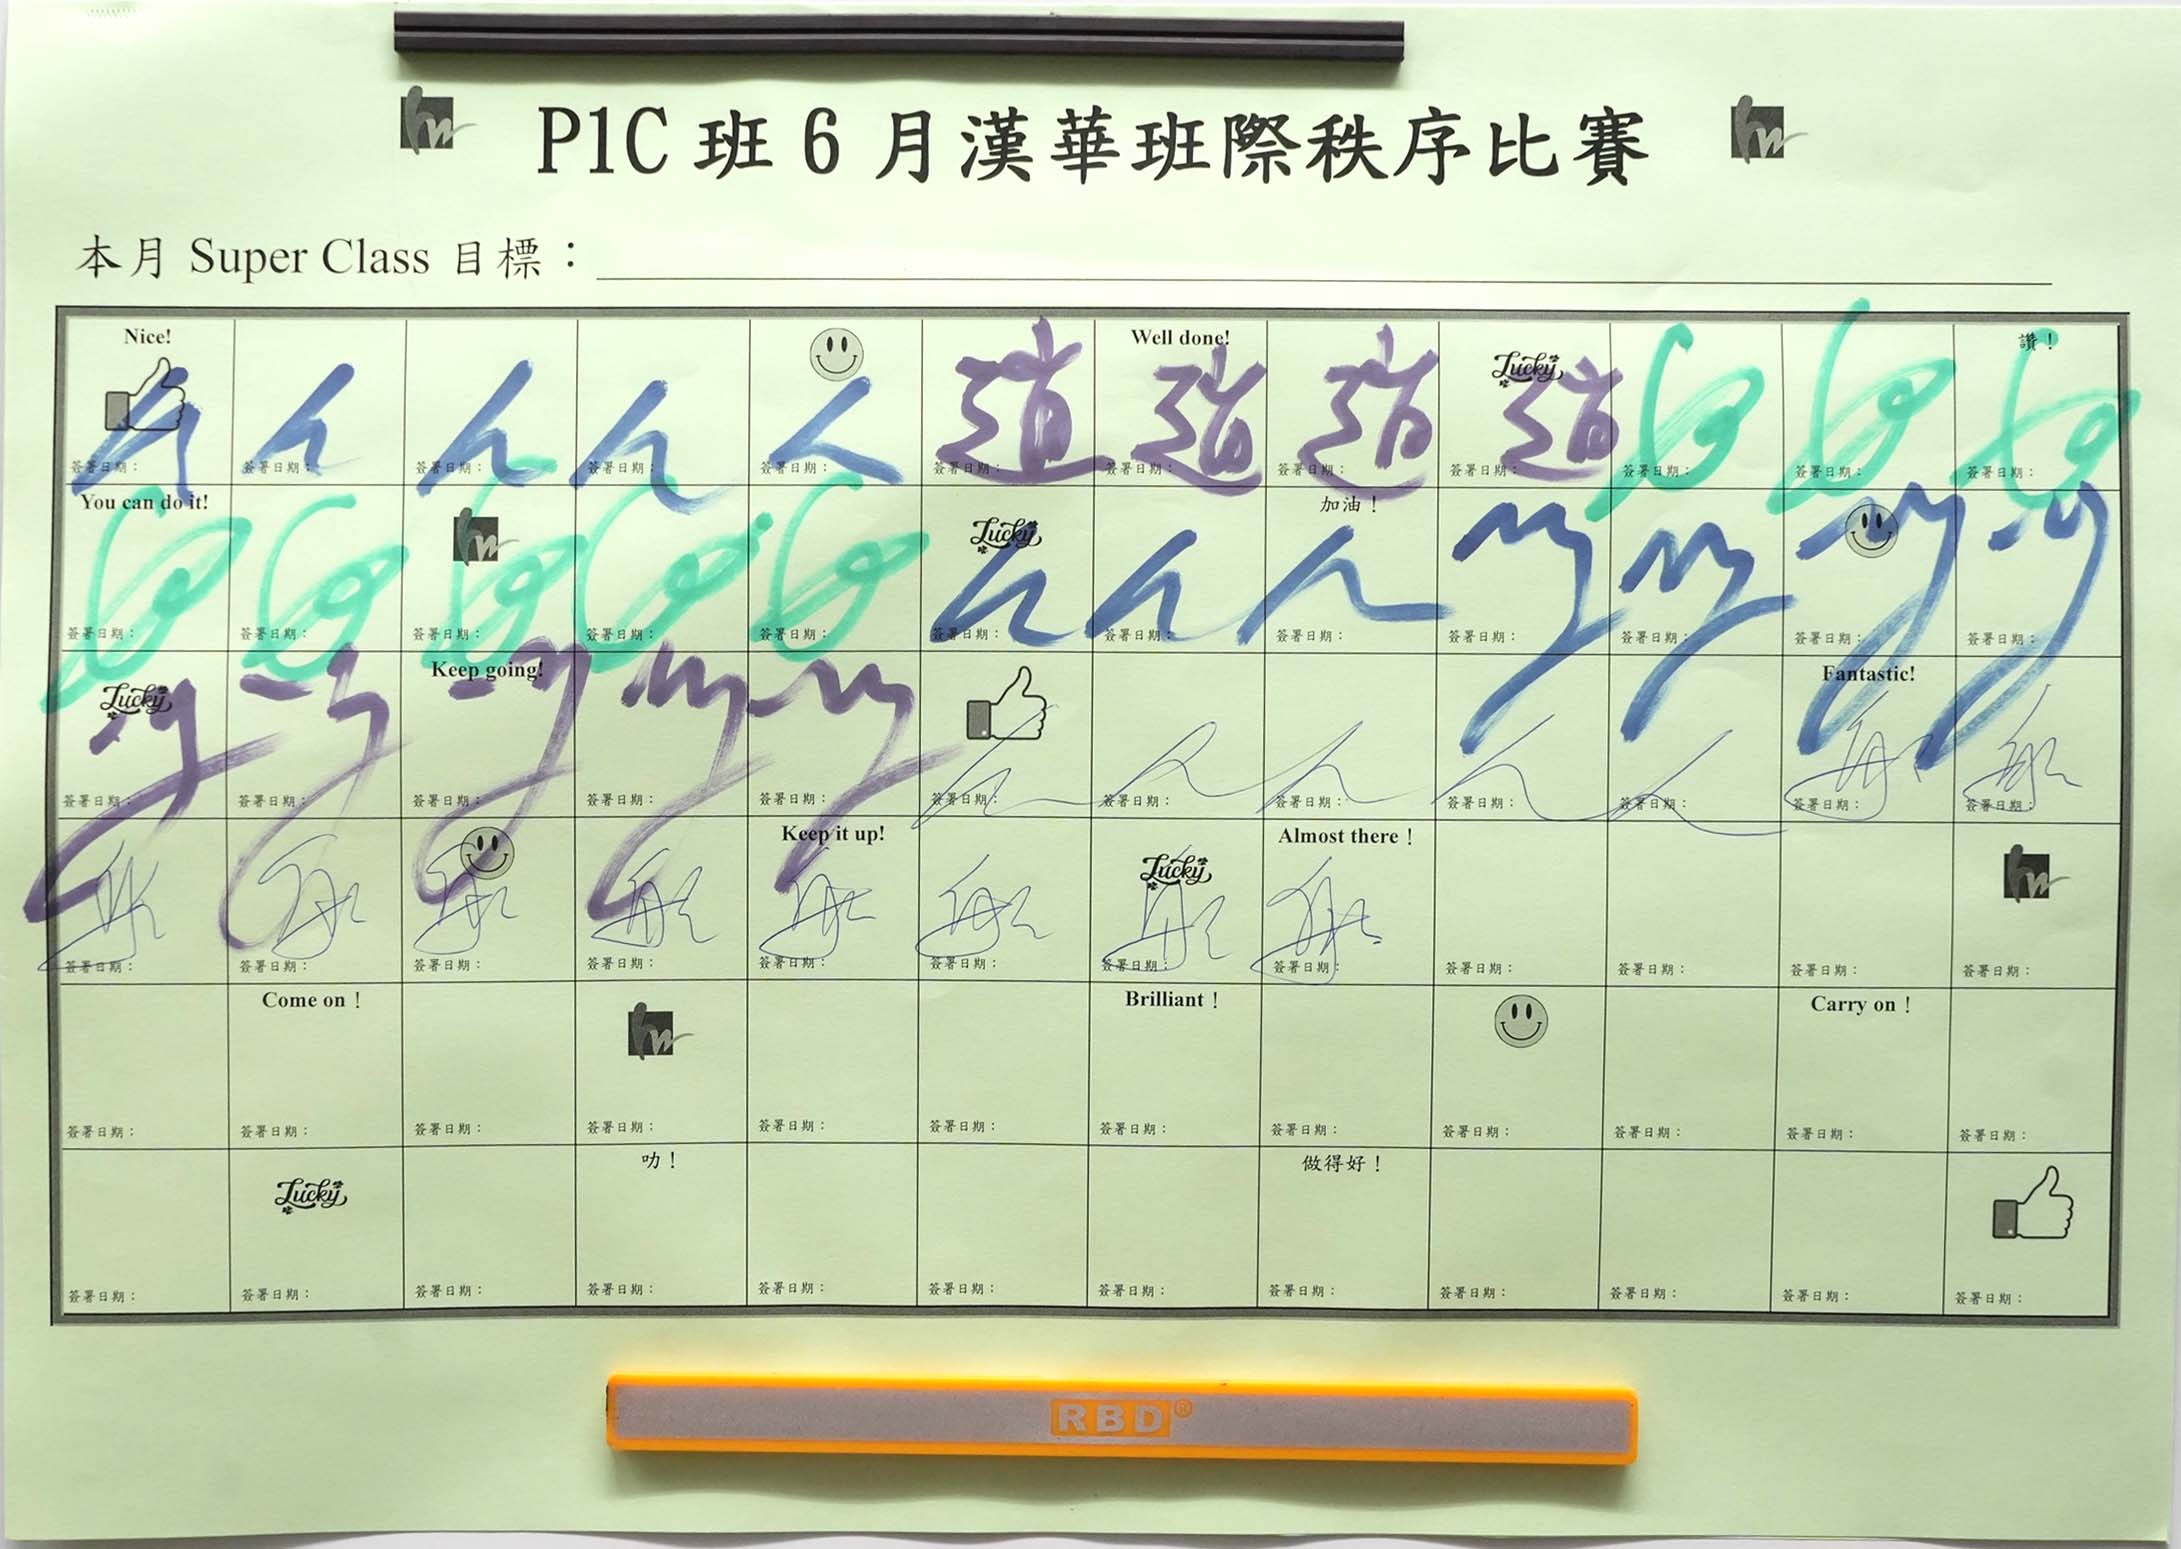 P1C 班 6 月漢華班際秩序比賽
本月 Super Class 目標：
Nice! Well done! Lucky 讚！
趙 趙 趙 趙
簽署日期： 簽署日期： 簽署日期： 簽署日期： 簽署日期： 簽署日期： 簽署日期： 簽署日期： 簽署日期： 簽署日期： 簽署日期： 簽署日期：
You can do it! hw Lucky 加油！
簽署日期： 簽署日期： 簽署日期： 簽署日期： 簽署日期： 簽署日期： 簽署日期： 簽署日期： 簽署日期： 簽署日期： 簽署日期： 簽署日期：
Lucky Keep going! Fantastic!
簽署日期： 簽署日期： 簽署日期： 簽署日期： 簽署日期： 簽署日期： 簽署日期： 簽署日期： 簽署日期： 簽署日期： 簽署日期： 簽署日期：
Keep it up! Lucky Almost there！ hw
簽署日期： 簽署日期： 簽署日期： 簽署日期： 簽署日期： 簽署日期： 簽署日期： 簽署日期： 簽署日期： 簽署日期： 簽署日期： 簽署日期：
Come on！ hw Brilliant！ Carry on！
簽署日期： 簽署日期： 簽署日期： 簽署日期： 簽署日期： 簽署日期： 簽署日期： 簽署日期： 簽署日期： 簽署日期： 簽署日期： 簽署日期：
Lucky 叻！ 做得好！
簽署日期： 簽署日期： 簽署日期： 簽署日期： 簽署日期： 簽署日期： 簽署日期： 簽署日期： 簽署日期： 簽署日期： 簽署日期： 簽署日期：
RBD®